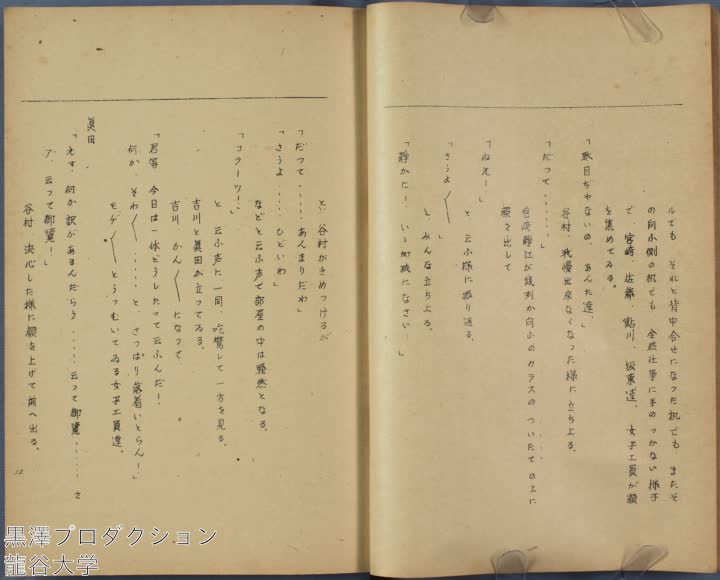 ルでも それと背中合せになった机でも またそ
の向ふ側の机でも 全然仕事に手のつかない様子
で、宮崎、佐藤、鮎川、坂東達、女子工員が額
を集めてゐる。
「駄目ぢゃないの、あんた達」
谷村、我慢出来なくなった様に立ち上る。
「だって‥‥‥」
江が後列か向ふのガラスのついたての上に
顔を出して
「ねえー」
と云ふ様に振り返る。
「さうよ〱」
と、みんな立ち上る。
「静かに!いゝ加減になさい」
と、谷村がきめつけるが
「だって‥‥!あんまりだわ」
「さうよ‥‥ひどいわ」
などと云ふ声で部屋の中は騒然となる。
「コラーッ!」
と云ふ声に一同、吃驚して一方を見る。
吉川と眞田が立ってゐる。
吉川 かん〱になって
「君等 今日は一体どうしたって云ふんだ!
何か、そわ〱‥‥‥と、さっぱり落着いとらん!」
モヂ〱とうつむいてゐる女子工員達。
眞田
「えゝ、何か訳があるんだらう‥‥云って御覧‥‥‥さ
ア、云って御覧!」
谷村 決心した様に顔を上げて前へ出る。
12
黒澤プロダクション
龍谷大学